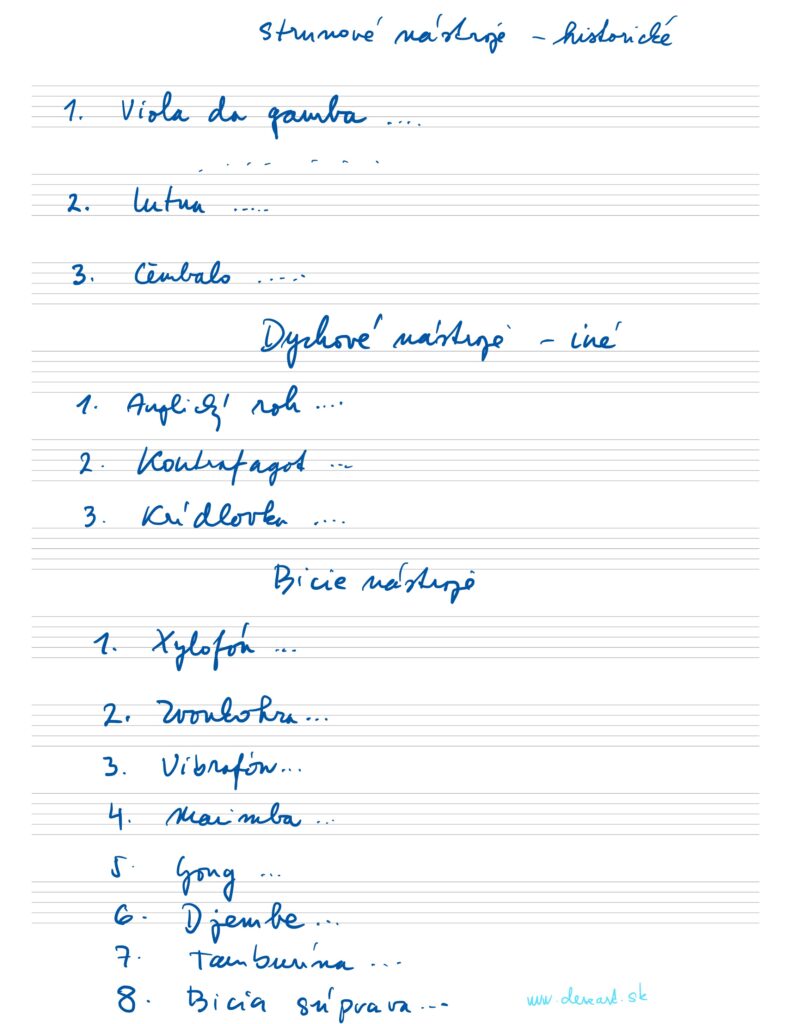 Strunové nástroje - historické
1. Viola da gamba ....
2. Lutna .....
3. Čembalo .....
Dychové nástroje - iné
1. Anglický roh ....
2. Kontrafagot ...
3. Krídlovka ....
Bicie nástroje
1. Xylofón ...
2. Zvonkohra ...
3. Vibrafón ...
4. Marimba ...
5. Gong ...
6. Djembe ...
7. Tamburína ...
8. Bicia súprava ...